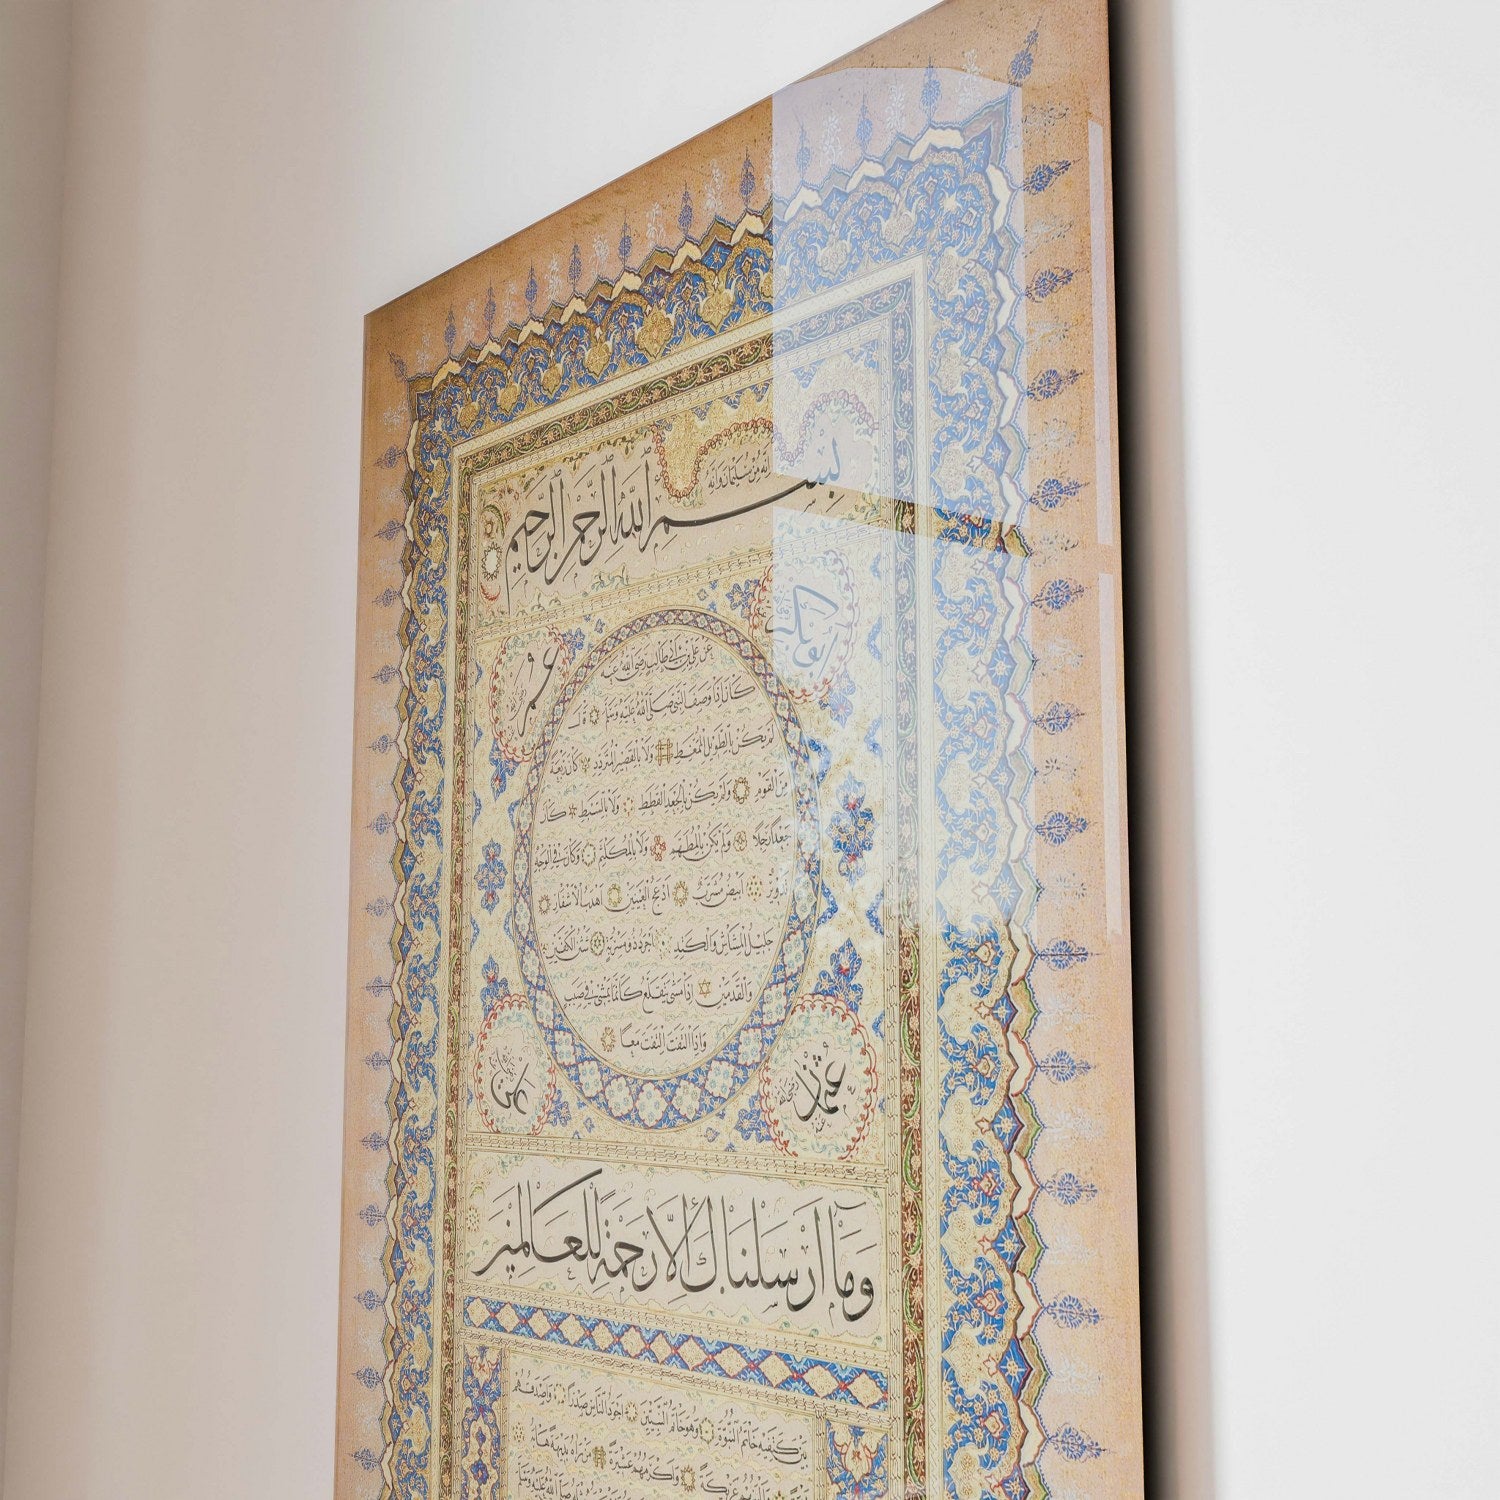 إنه من سليمان وإنه
بسم الله الرحمن الرحيم
ابو بكر
عمر
عن علي بن ابي طالب رضي الله عنه
كان اذا وصف النبي صلى الله عليه وسلم قال
لم يكن بالطويل الممغط ولا بالقصير المتردد كان ربعة
من القوم ولم يكن بالجعد القطط ولا بالسبط كان
جعدا رجلا ولم يكن بالمطهم ولا بالمكلثم وكان في الوجه
تدوير ابيض مشرب ادعج العينين اهدب الاشفار
جليل المشاش والكتد اجرد ذو مسربة شثن الكفين
والقدمين اذا مشى يتقلع كانما يمشي في صبب
واذا التفت التفت معا
عثمان
علي
وَمَا أَرْسَلْنَاكَ إِلَّا رَحْمَةً لِلْعَالَمِينَ
بين كتفيه خاتم النبوة وهو خاتم النبيين اجود الناس صدرا واصدقهم
واكرمهم عشيرة من رآه بديهة هابه